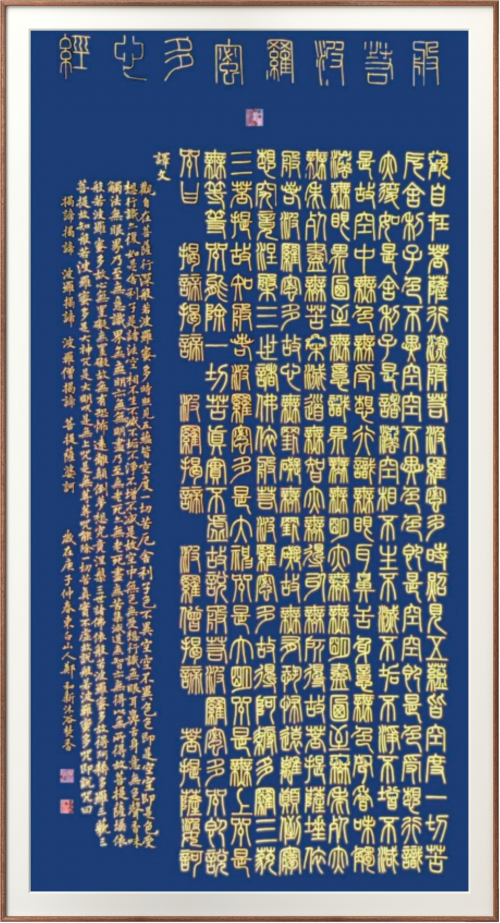 般若波羅蜜多心經
觀自在菩薩行深般若波羅蜜多時照見五蘊皆空度一切苦
厄舍利子色不異空空不異色色即是空空即是色受想行識
亦復如是舍利子是諸法空相不生不滅不垢不淨不增不減
是故空中無色無受想行識無眼耳鼻舌身意無色聲香味觸
法無眼界乃至無意識界無無明亦無無明盡乃至無老死亦
無老死盡無苦集滅道無智亦無得以無所得故菩提薩埵依
般若波羅蜜多故心無罣礙無罣礙故無有恐怖遠離顛倒夢
想究竟涅槃三世諸佛依般若波羅蜜多故得阿耨多羅三藐
三菩提故知般若波羅蜜多是大神咒是大明咒是無上咒是
無等等咒能除一切苦真實不虛故說般若波羅蜜多咒即說
咒曰 揭諦揭諦 波羅揭諦 波羅僧揭諦 菩提薩婆訶
譯文
觀自在菩薩行深般若波羅蜜多時照見五蘊皆空度一切苦厄舍利子色不異空空不異色色即是空空即是色受
想行識亦復如是舍利子是諸法空相不生不滅不垢不淨不增不減是故空中無色無受想行識無眼耳鼻舌身意無色聲香味
觸法無眼界乃至無意識界無無明亦無無明盡乃至無老死亦無老死盡無苦集滅道無智亦無得以無所得故菩提薩埵依
般若波羅蜜多故心無罣礙無罣礙故無有恐怖遠離顛倒夢想究竟涅槃三世諸佛依般若波羅蜜多故得阿耨多羅三藐三
菩提故知般若波羅蜜多是大神咒是大明咒是無上咒是無等等咒能除一切苦真實不虛故說般若波羅蜜多咒即說咒曰
揭諦揭諦 波羅揭諦 波羅僧揭諦 菩提薩婆訶 歲在庚子仲春東白山人鄭新沐浴焚香